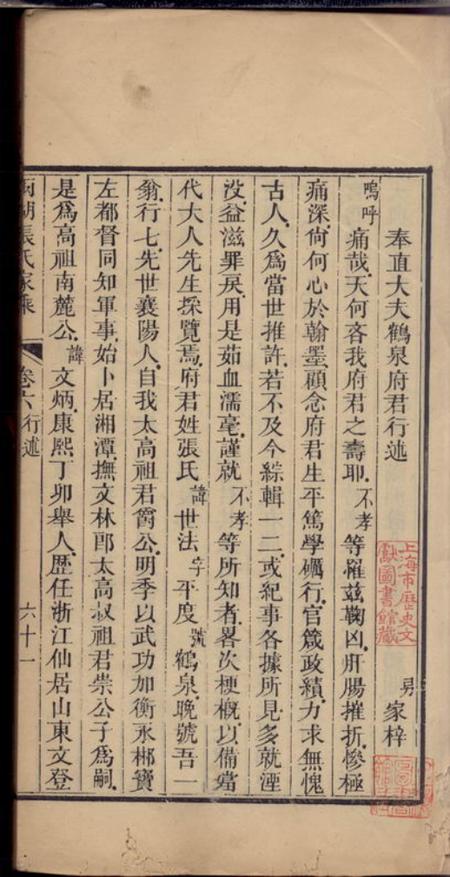 奉直大夫鶴泉府君行述
男 家梓
嗚呼痛哉天何吝我府君之壽耶不孝等罹茲鞠凶肝腸摧折慘極
痛深尙何心於翰墨顧念府君生平篤學礪行官箴政績力求無愧
古人久爲當世推許若不及今綜輯一二或紀事各據所見多就湮
没益滋罪戾用是茹血濡毫謹就不孝等所知者畧次梗概以備當
代大人先生採覽焉府君姓張氏諱世法字平度號鶴泉晚號吾一
翁行七先世襄陽人自我太高祖君爵公明季以武功加衡永郴寶
左都督同知軍事始卜居湘潭撫文林郎太高叔祖君崇公子爲嗣
是爲高祖南麓公諱文炳康熙丁卯舉人歷任浙江仙居山東文登
湖張氏家乘
卷六 行述
六十一
上海市歷史文
獻圖書館藏